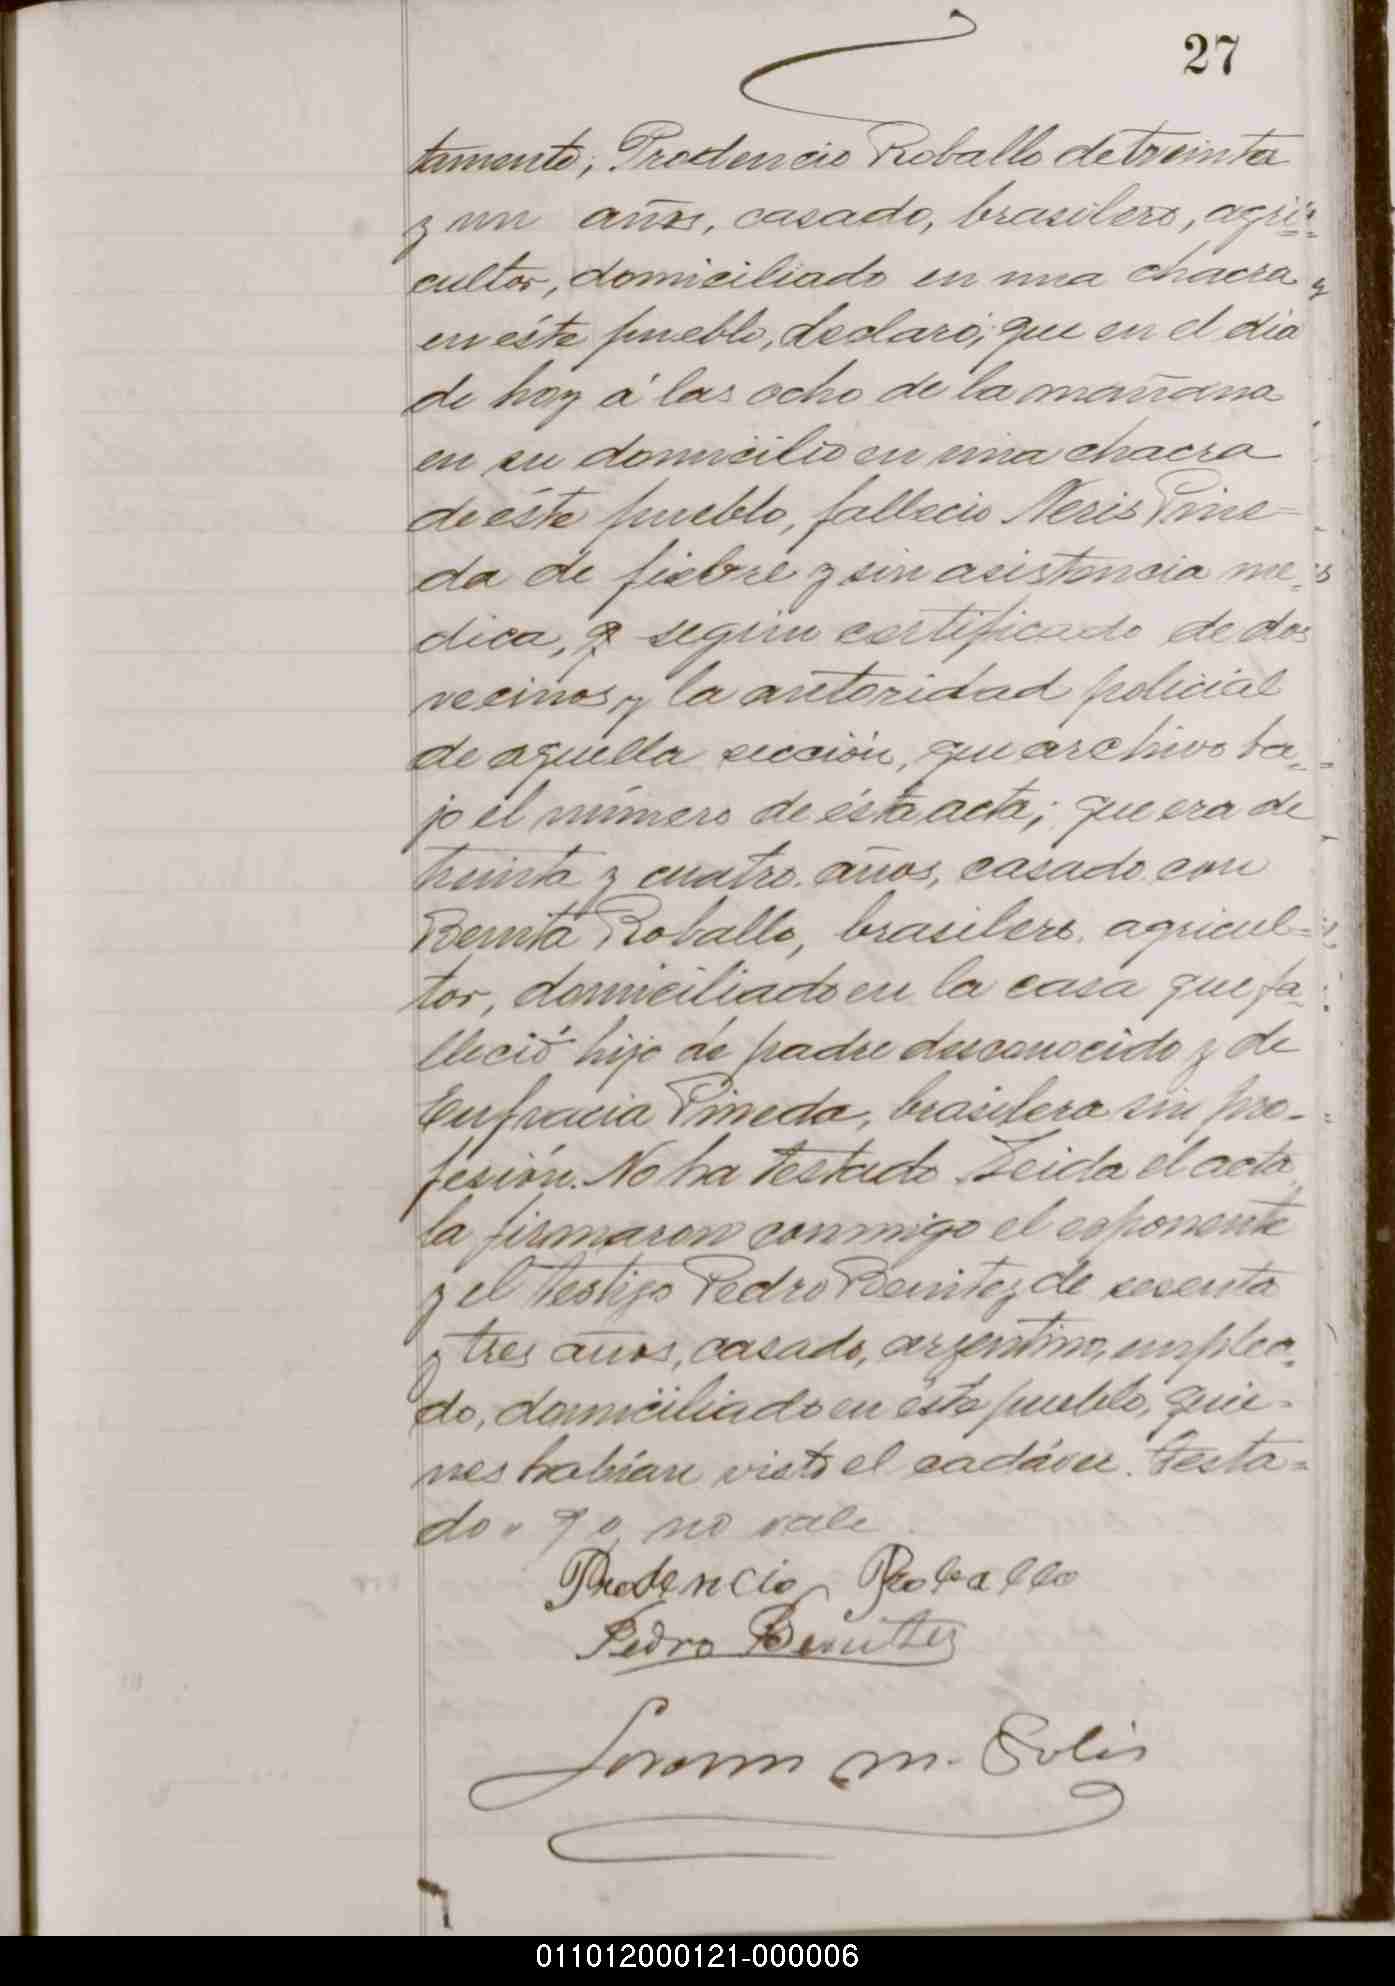 27
tamente, Prodencio Roballo de treinta
y un años, casado, brasilero, agri=
cultor, domiciliado en una chacra
en éste pueblo, declaró; que en el dia
de hoy á las ocho de la mañana
en su domicilio en una chacra
de éste pueblo, fallecio Neris Pine-
da de fiebre y sin asistencia me=
dica, segun certificado de dos
vecinos y la autoridad policial
de aquella sección, que archivo ba=
jo el número de ésta acta; que era de
treinta y cuatro años, casado con
Benita Roballo, brasilero, agricul=
tor, domiciliado en la casa que fa=
lleció hijo de padre desconocido y de
Eufracia Pineda, brasilera sin pro-
fesión. No ha testado. Leida el acta
la firmaron conmigo el esponente
y el testigo Pedro Benitez de sesenta
y tres años, casado, argentino, emplea=
do, domiciliado en éste pueblo, quie=
nes habían visto el cadáver. Testa=
do no vale
Prodencio Roballo
Pedro Benitez
M. Solis
011012000121-000006